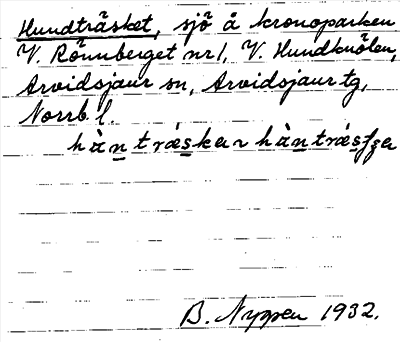 Hundträsket, sjö å kronoparken
V. Rönnberget nr 1, V. Hundknölen,
Arvidsjaur sn, Arvidsjaur tg,
Norrb. l.
B. Nyppen 1932.